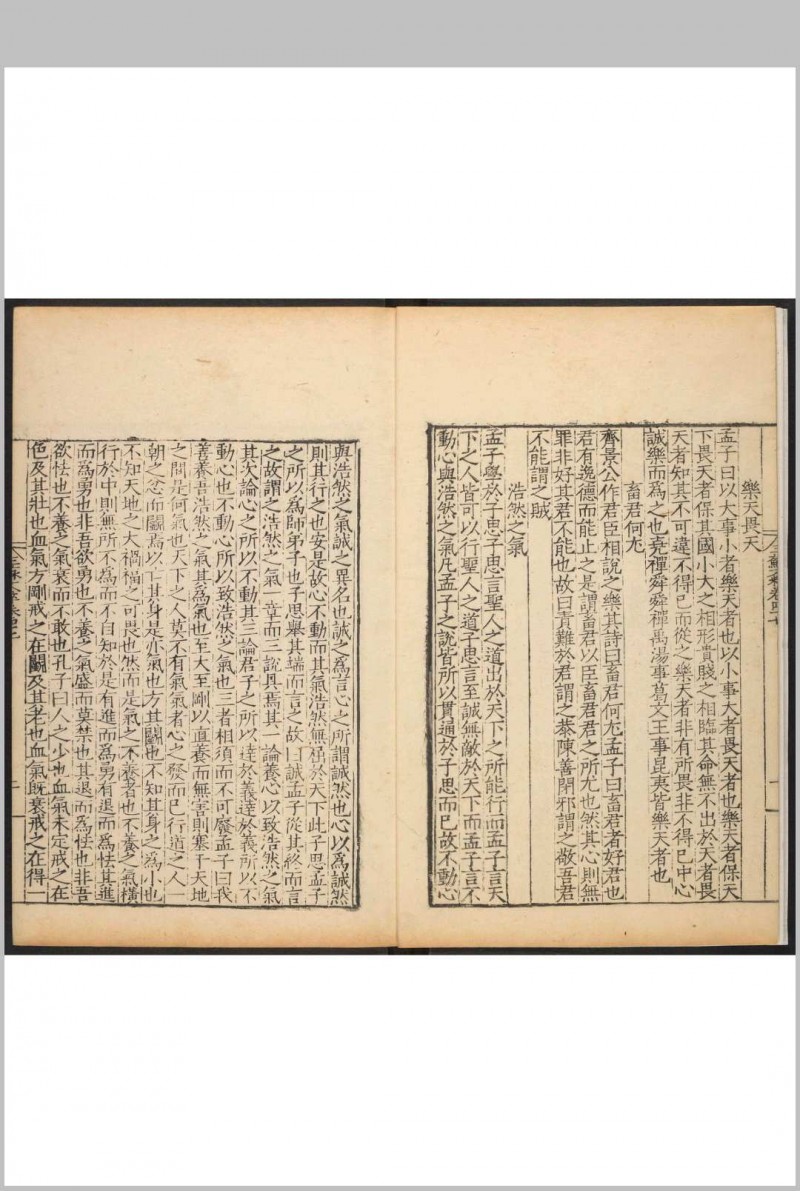 樂天畏天
孟子曰以大事小者樂天者也以小事大者畏天者也樂天者保天
下畏天者保其國小大之相形貴賤之相臨其命無不出於天者畏
天者知其不可違不得已而從之樂天者非有所畏非不得已中心
誠樂而爲之也堯禪舜舜禪禹湯事葛文王事昆夷皆樂天者也
畜君何尤
齊景公作君臣相說之樂其詩曰畜君何尤孟子曰畜君者好君也
君有逸德而能止之是謂畜君以臣畜君君之所尤也然其心則無
罪非好其君不能也故曰責難於君謂之恭陳善閉邪謂之敬吾君
不能謂之賊
浩然之氣
孟子學於子思子思言聖人之道出於天下之所能行而孟子言天
下之人皆可以行聖人之道子思言至誠無敵於天下而孟子言不
動心與浩然之氣凡孟子之說皆所以貫通於子思而已故不動心
與浩然之氣誠之異名也誠之爲言心之所謂誠然也心以爲誠然
則其行之也安是故心不動而其氣浩然無屈於天下此子思孟子
之所以爲師弟子也子思舉其端而言之故曰誠孟子從其終而言
之故謂之浩然之氣一章而三說具焉其一論養心以致浩然之氣
其次論心之所以不動其三論君子之所以達於義達於義所以不
動心也不動心所以致浩然之氣也三者相須而不可廢孟子曰我
善養吾浩然之氣其爲氣也至大至剛以直養而無害則塞于天地
之間是何氣也天下之人莫不有氣氣者心之發而已行道之人一
朝之忿而鬭焉以亡其身是亦氣也方其鬭也不知其身之爲小也
不知天地之大禍福之可畏也然而是氣之不養者也不養之氣橫
行於中則無所不爲而不自知於是有進而爲勇有退而爲怯其進
而爲勇也非吾欲勇也不養之氣盛而莫禁也其退而爲怯也非吾
欲怯也不養之氣衰而不敢也孔子曰人之少也血氣未定戒之在
色及其壯也血氣方剛戒之在鬭及其老也血氣既衰戒之在得一